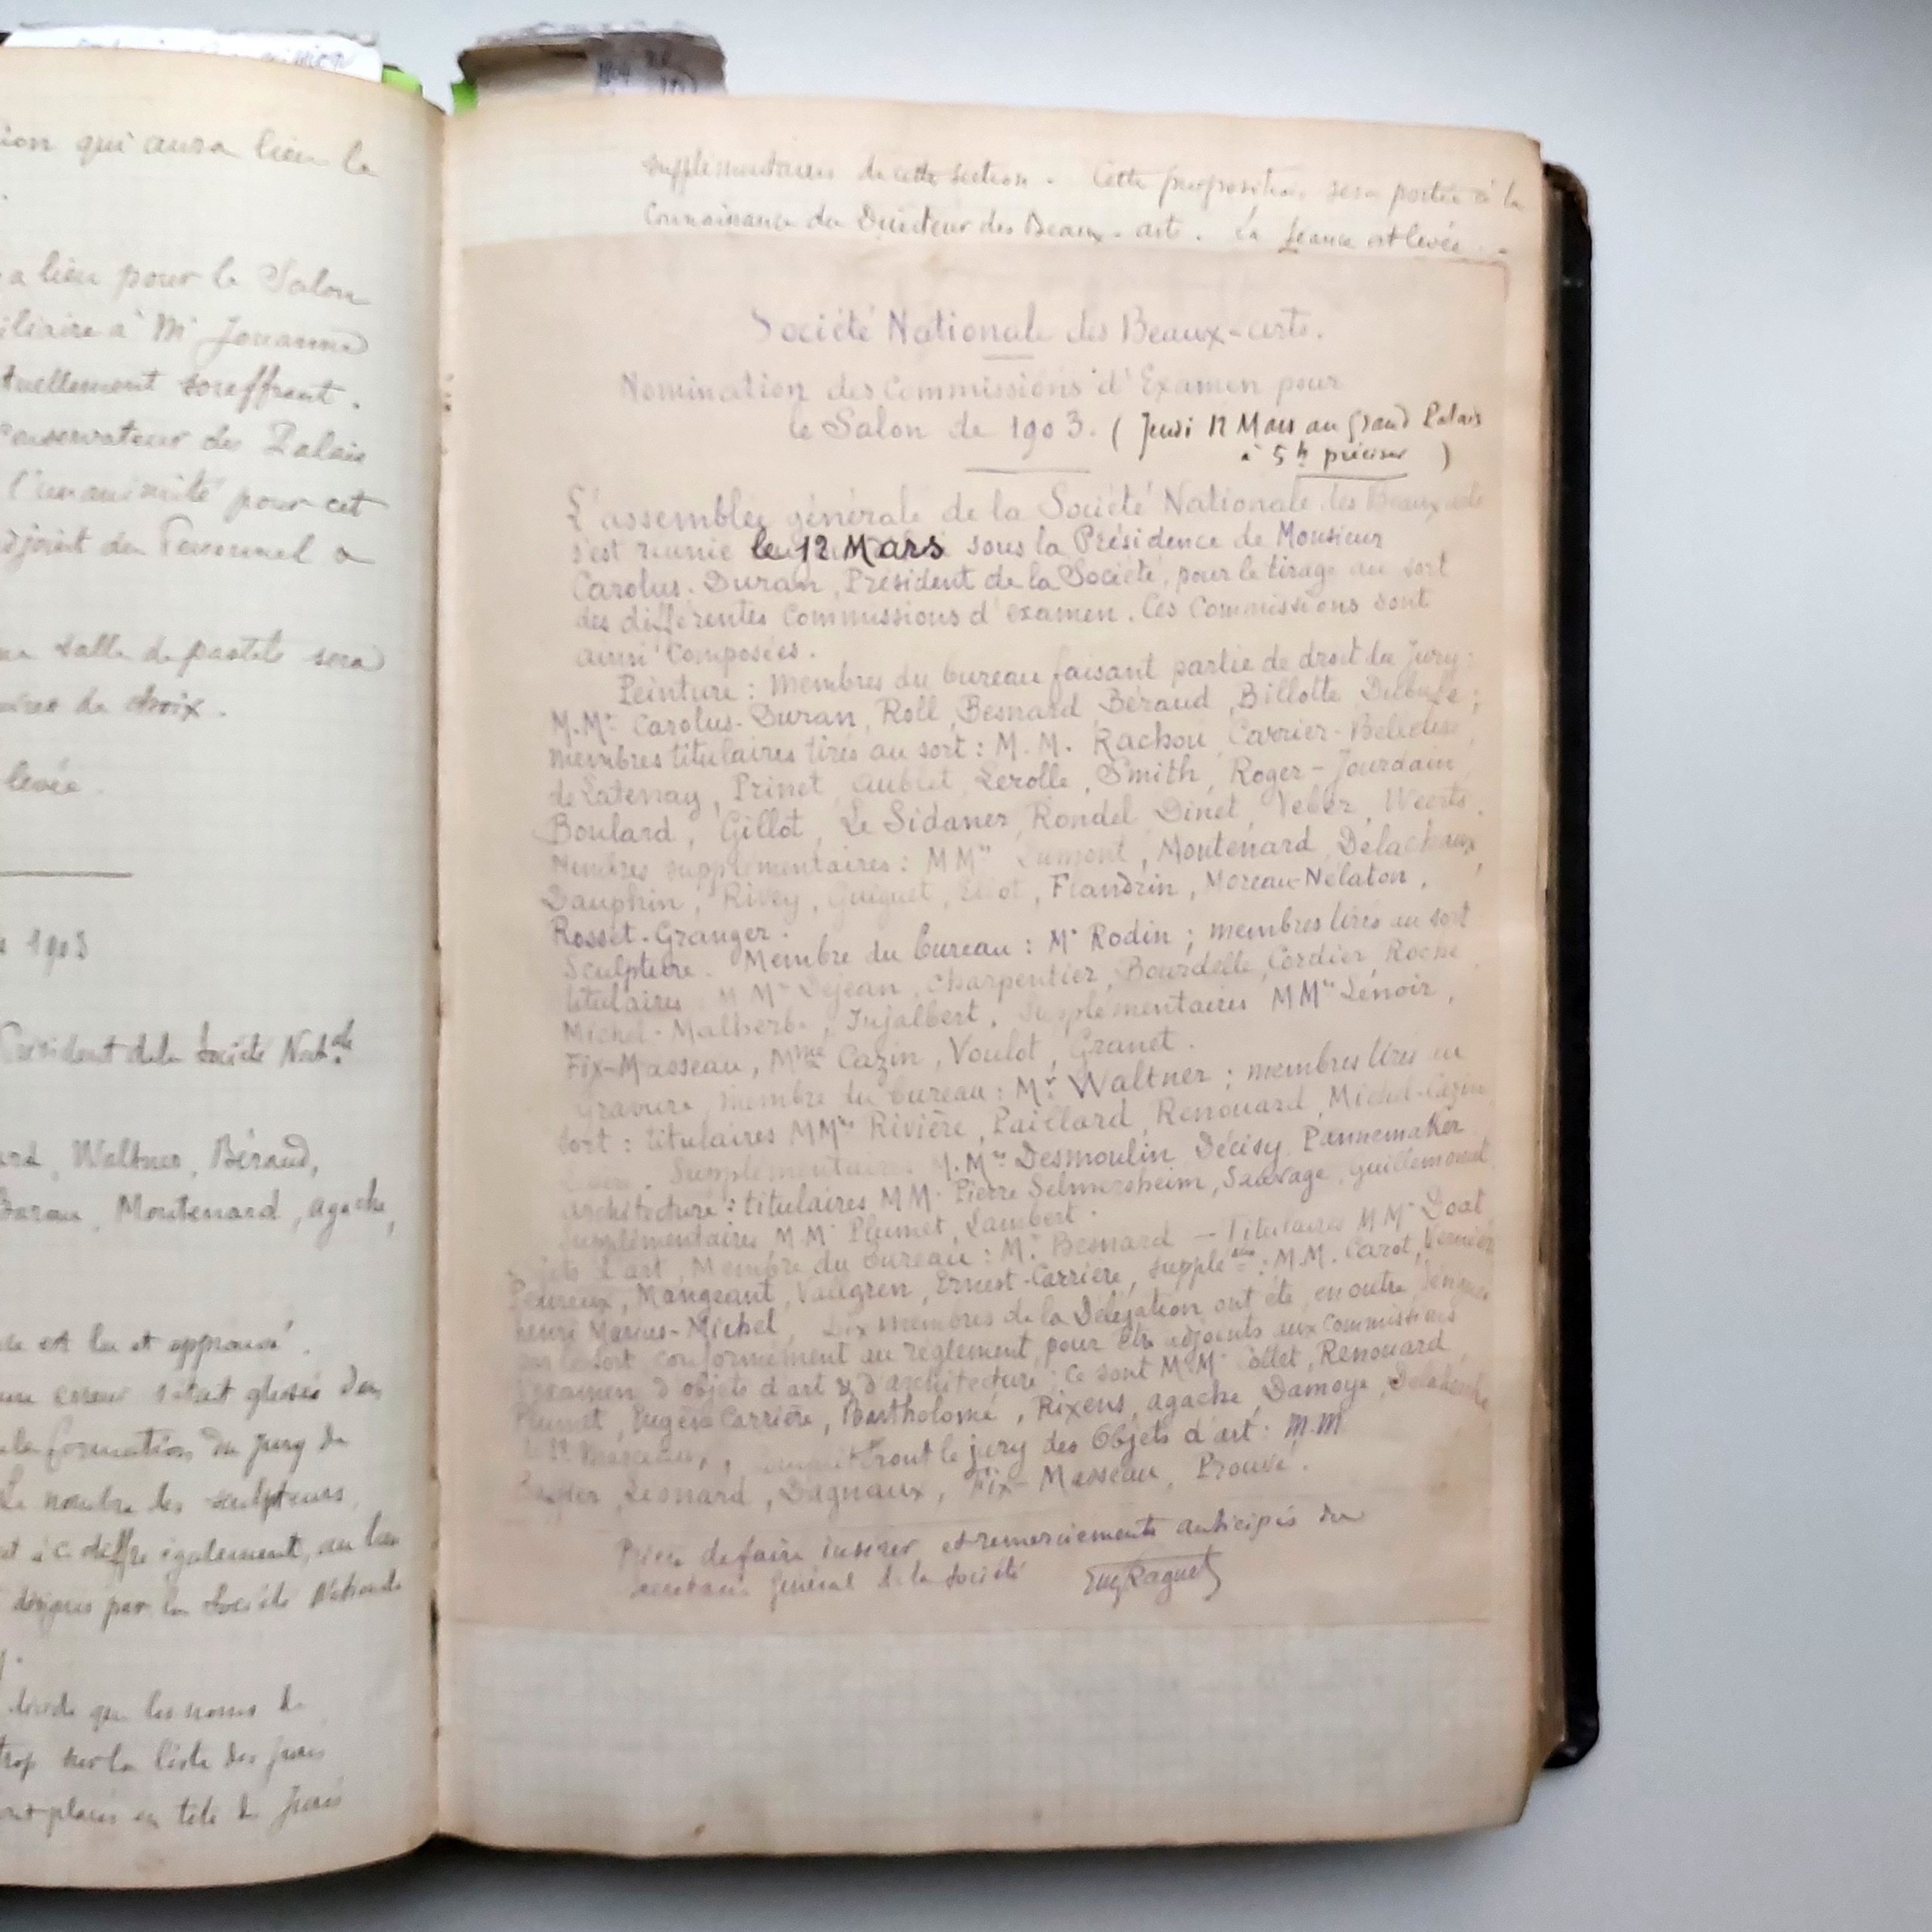 ion qui aura lieu la
a lieu pour le Salon
à Mr Jouanne
tuellement souffrant.
Conservateur des Palais
l'unanimité pour cet
djoint du Personnel a
salle de pastels sera
de choix.
levée.
1903
Président de la Société Natale
Waltner, Béraud,
Montenard, Agache,
est lu et approuvé.
une erreur s'était glissée dans
la formation du jury de
Le nombre des sculpteurs,
chiffre également, au lieu
désignés par la Société Nationale
décide que les noms de
trop sur la liste des jurés
placés en tête de jurés
supplémentaires de cette section. Cette proposition sera portée à la
connaissance du Directeur des Beaux-arts. La séance est levée.
Société Nationale des Beaux-arts.
Nomination des Commissions d'Examen pour
le Salon de 1903. (Jeudi 12 Mars au Grand Palais
à 5h précises)
L'assemblée générale de la Société Nationale des Beaux-arts
s'est réunie le 12 Mars sous la Présidence de Monsieur
Carolus-Duran, Président de la Société, pour le tirage au sort
des différentes Commissions d'examen. Ces Commissions sont
ainsi composées.
Peinture : membres du bureau faisant partie de droit du Jury :
M.Mrs Carolus-Duran, Roll, Besnard, Béraud, Billotte, Dubufe ;
membres titulaires tirés au sort : M.M. Rachou, Carrier-Belleuse,
de Latenay, Prinet, Aublet, Lerolle, Smith, Roger-Jourdain
Boulard, Gillot, Le Sidaner, Rondel, Dinet, Veber, Weerts.
Membres supplémentaires : MMrs Dumont, Montenard, Delachaux,
Dauphin, Rivey, Guiguet, Eliot, Flandrin, Moreau-Nélaton,
Rosset-Granger.
Sculpture. Membre du bureau : Mr Rodin ; membres tirés au sort
titulaires MMrs Dejean, Charpentier, Bourdelle, Cordier, Roche
Michel-Malherbe, Injalbert, Supplémentaires MMrs Lenoir,
Fix-Masseau, Mme Cazin, Voulot, Granet.
Gravure, membre du bureau : Mr Waltner ; membres tirés au
sort : titulaires MMrs Rivière, Paillard, Renouard, Michel-Cazin
Supplémentaires M.Mrs Desmoulin, Décisy, Pannemaker
Architecture : titulaires MM. Pierre Selmersheim, Sauvage, Guillemonat
Supplémentaires MM. Plumet, Lambert.
Objets d'art, Membre du bureau : Mr Besnard — Titulaires MM. Doat,
Heureux, Mangeant, Vallgren, Ernest-Carrière, suppléres : M.M. Carot, Vernier
Henri Marius-Michel, Dix membres de la Délégation ont été, en outre, désignés
par le sort, conformément au règlement, pour être adjoints aux Commissions
d'examen d'objets d'art & d'architecture ; ce sont M.M. Cottet, Renouard
Plumet, Eugène Carrière, Bartholomé, Rixens, Agache, Damoye, Delahenche
le jury des Objets d'art : M.M.
Léonard, Dagnaux, Fix-Masseau, Prouvé.
Prière de faire insérer et remerciements anticipés du
secrétaire général de la Société Eug Raguet